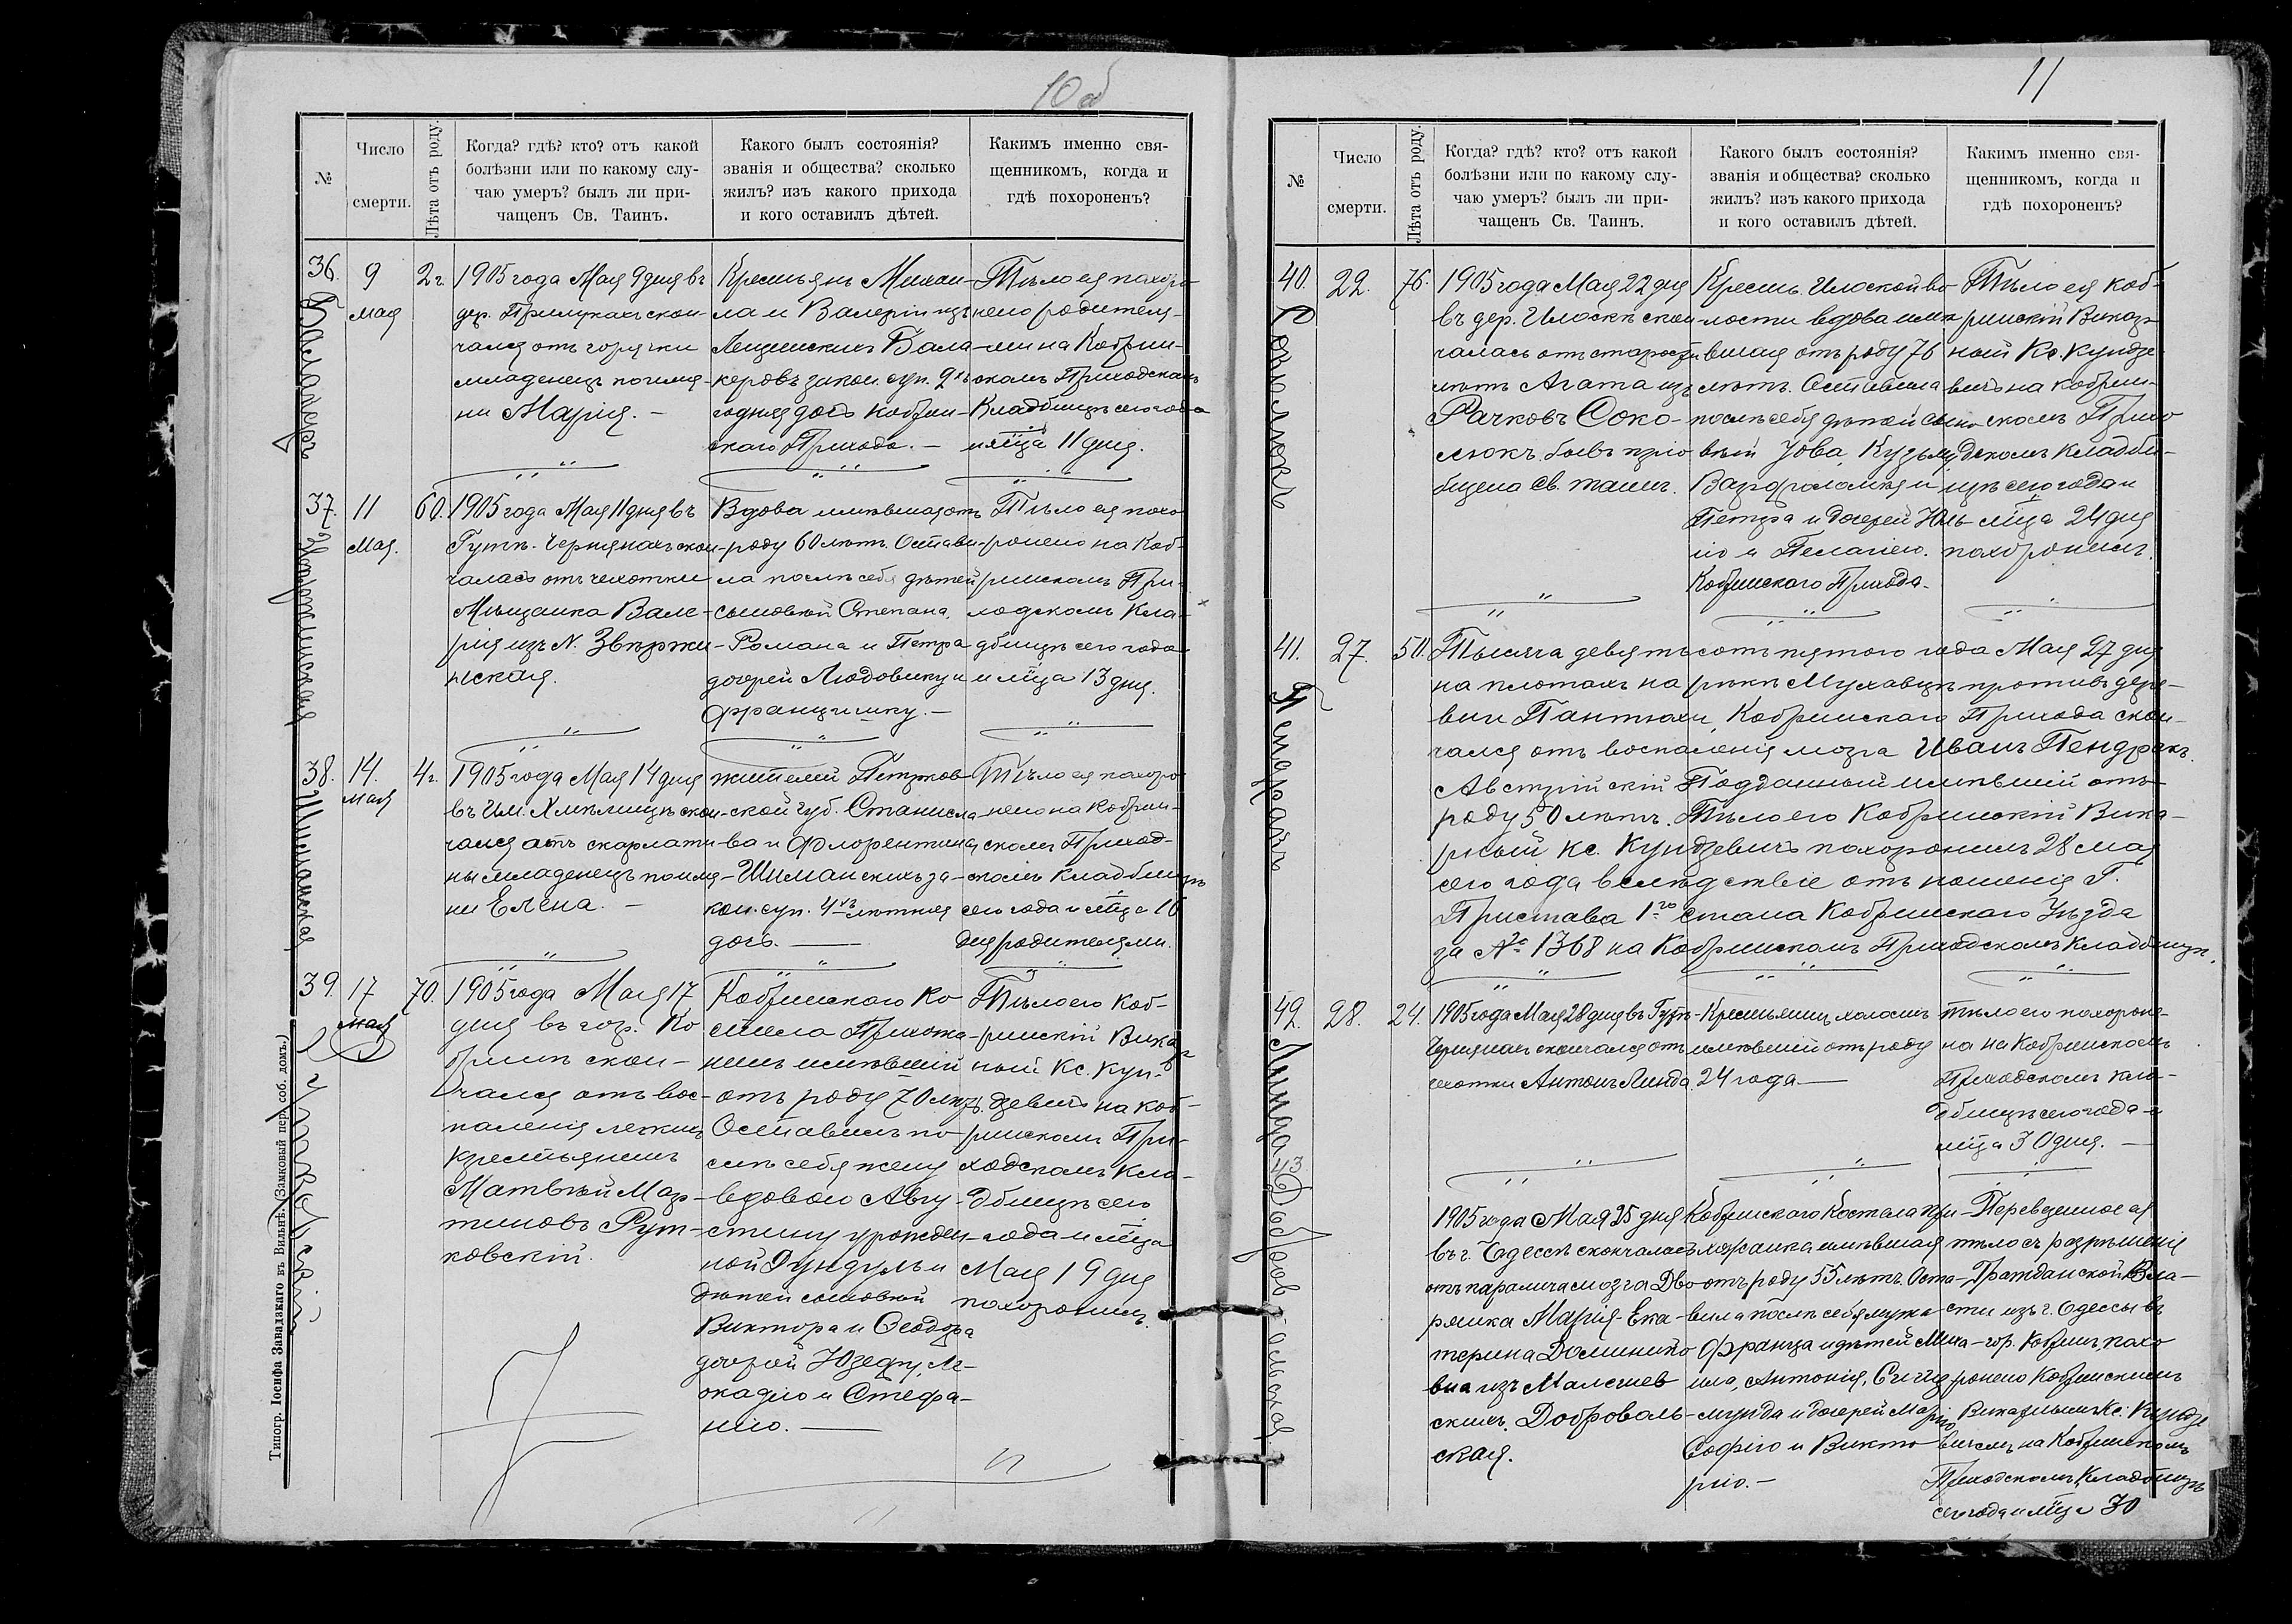 10 об
№
Число
смерти.
Лѣта отъ роду.
Когда? гдѣ? кто? отъ какой
болѣзни или по какому слу-
чаю умеръ? былъ ли при-
чащенъ Св. Таинъ.
Какого былъ состоянія?
званія и общества? сколько
жилъ? изъ какого прихода
и кого оставилъ дѣтей.
Какимъ именно свя-
щенникомъ, когда и
гдѣ похороненъ?
36.
9
мая
2 г.
1905 года Мая 9 дня въ
дер. Прилукахъ скон-
чался отъ горячки
младенецъ по име-
ни Марія. —
Крестьянъ Михаи-
ла и Валеріи изъ
Лещинскихъ Вала-
керовъ закон. суп. 2хъ
годняя дочь Кобрин-
скаго Прихода. —
Тѣло ея похоро-
нено родителя-
ми на Кобрин-
скомъ Приходскомъ
Кладбищѣ сего года
и мѣца 11 дня.
37.
Звержинская
11
Мая.
60.
1905 года Мая 11 дня въ
Гутѣ-Чернянахъ скон-
чалась отъ чахотки
Мѣщанка Вале-
рія изъ N. Звѣржи-
нская.
Вдова имѣвшая отъ
роду 60 лѣтъ. Остави-
ла послѣ себя дѣтей
сыновей Степана,
Романа и Петра
дочерей Людовику и
Францишку. —
Тѣло ея похо-
ронено на Коб-
ринскомъ При-
ходскомъ Кла-
дбищѣ сего года
и мѣца 13 дня.
38.
Шиманская
14.
Мая
4 г.
1905 года Мая 14 дня
въ Им. Хмѣлищѣ скон-
чался отъ скарлати-
ны младенецъ по име-
ни Елена. —
жителей Петрков-
ской губ. Станисла-
ва и Флорентины
Шиманскихъ за-
кон. суп. 4хъ лѣтняя
дочь. —
Тѣло ея похоро-
нено на Кобрин-
скомъ Приход-
скомъ Кладбищѣ
сего года и мѣца 16
дня родителями.
39.
Рутковскій
17
мая
70.
1905 года Мая 17
дня въ гор. Ко
бринѣ скон-
чался отъ вос-
паленія легкихъ
крестьянинъ
Матвѣй Мар-
тиновъ Рут-
ковскій.
Кобринскаго Ко
стела Прихожа-
нинъ имѣвшій
отъ роду 70 лѣтъ.
Оставилъ по
слѣ себя жену
вдовою Авгу-
стину урожден-
ной Дундуль и
дѣтей сыновей
Виктора и Ѳеодора
дочерей Юзефу, Ле-
окадію и Стефа-
нію. —
Тѣло его Коб-
ринскій Викар-
ный Кс. Кун-
дзевичъ на Коб-
ринскомъ При-
ходскомъ Кла-
дбищѣ сего
года и мѣца
Мая 19 дня
похоронилъ.
Типогр. Іосифа Завадзкаго въ Вильнѣ. (Замковый пер., соб. домъ.)
11
№
Число
смерти.
Лѣта отъ роду.
Когда? гдѣ? кто? отъ какой
болѣзни или по какому слу-
чаю умеръ? былъ ли при-
чащенъ Св. Таинъ.
Какого былъ состоянія?
званія и общества? сколько
жилъ? изъ какого прихода
и кого оставилъ дѣтей.
Какимъ именно свя-
щенникомъ, когда и
гдѣ похороненъ?
40.
Соколюкъ
22.
76.
1905 года Мая 22 дня
въ дер. Илоскѣ скон-
чалась отъ старости
лѣтъ Агата изъ
Рачковъ Соко-
люкъ бывъ прiо
бщена Св. таинъ.
Крестъ. Илоской во-
лости вдова имѣ
вшая отъ роду 76
лѣтъ. Оставила
послѣ себя дѣтей сыно
вей Іова, Кузьму,
Варфоломея и
Петра и дочерей Юль-
ію и Пелагію.
Кобринскаго Прихода.
Тѣло ея Коб-
ринскій Викар-
ный Кс. Кундзе-
вичъ на Кобрин-
скомъ Прихо
дскомъ Кладби-
щѣ сего года и
мѣца 24 дня
похоронилъ.
41.
Пендракъ
27.
50.
Тысяча девятьсотъ пятого года Мая 27 дня
на плотахъ на рѣкѣ Мухавцѣ противъ дере-
вни Пантюхи, Кобринскаго Прихода скон-
чался отъ воспаленія мозга Иванъ Пендракъ.
Австрійскій Подданный имѣвшій отъ
роду 50 лѣтъ. Тѣло его Кобринскій Вика-
рный Кс. Кундзевичъ похоронилъ 28 мая
сего года вслѣдствіе отъ ношенія Г.
Пристава 1-го стана Кобринскаго Уѣзда
за № 1368 на Кобринскомъ Приходскомъ Кладбищѣ.
42.
Линда
28.
24.
1905 года Мая 28 дня въ Гутѣ-
Чернянахъ скончался отъ
чахотки Антонъ Линда
Крестьянинъ холостъ
имѣвшій отъ роду
24 года. —
тѣло его похороне-
но на Кобринскомъ
Приходскомъ кла-
дбищѣ сего года и
мѣца 30 дня. —
43.
Добровольская
1905 года Мая 25 дня
въ г. Одессѣ скончалась
отъ паралича мозга Дво
рянка Марія-Ека-
терина Доминико
вна изъ Малешев
скихъ Доброволь-
ская.
Кобринскаго Костела при
хожанка имѣвшая
отъ роду 55 лѣтъ. Оста-
вила послѣ себя мужа
Франца и дѣтей Миха-
ила, Антонія, Сигиз
мунда и дочерей Марію,
Софію и Викто
рію. —
Перевезенное ея
тѣло съ разрѣшенія
Гражданской Вла-
сти изъ г. Одессы въ
гор. Кобринъ, похо
ронено Кобринскимъ
Викарнымъ Кс. Кундзе
вичемъ на Кобринскомъ
Приходскомъ Кладбищѣ
сего года и мѣца 30